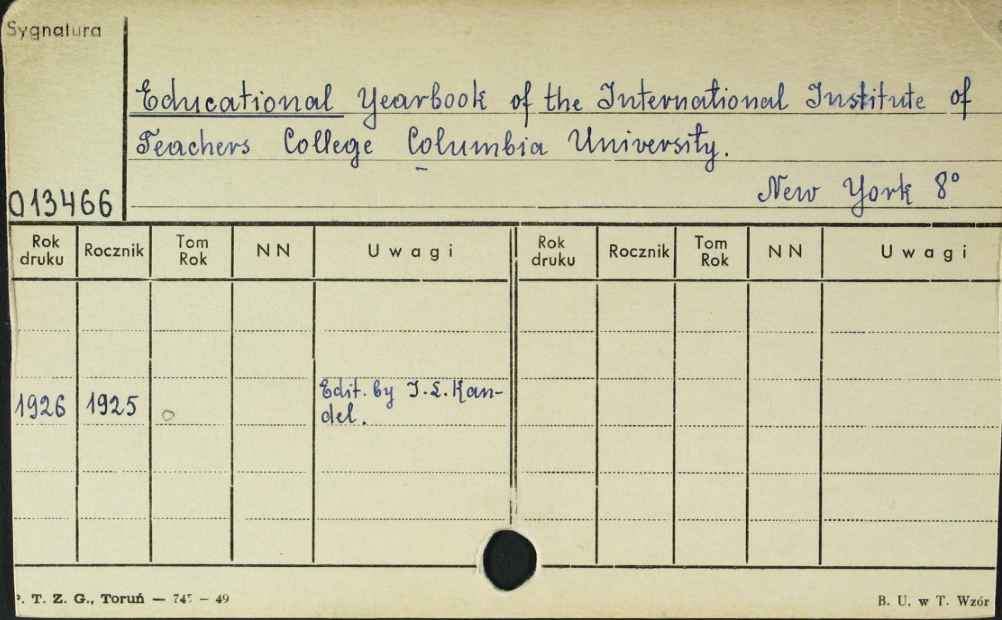 Sygnatura
Educational Yearbook of the International Institute of
Teachers College Columbia University.
New York 8°
013466
Rok druku Rocznik Tom Rok NN Uwagi Rok druku Rocznik Tom Rok NN Uwagi
1926 1925 Edit. by I. L. Kan-
del.
P. T. Z. G., Toruń — 745 — 49
B. U. w T. Wzór